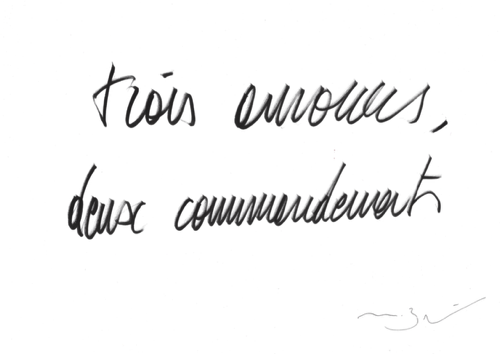 trois amours,
deux commandements